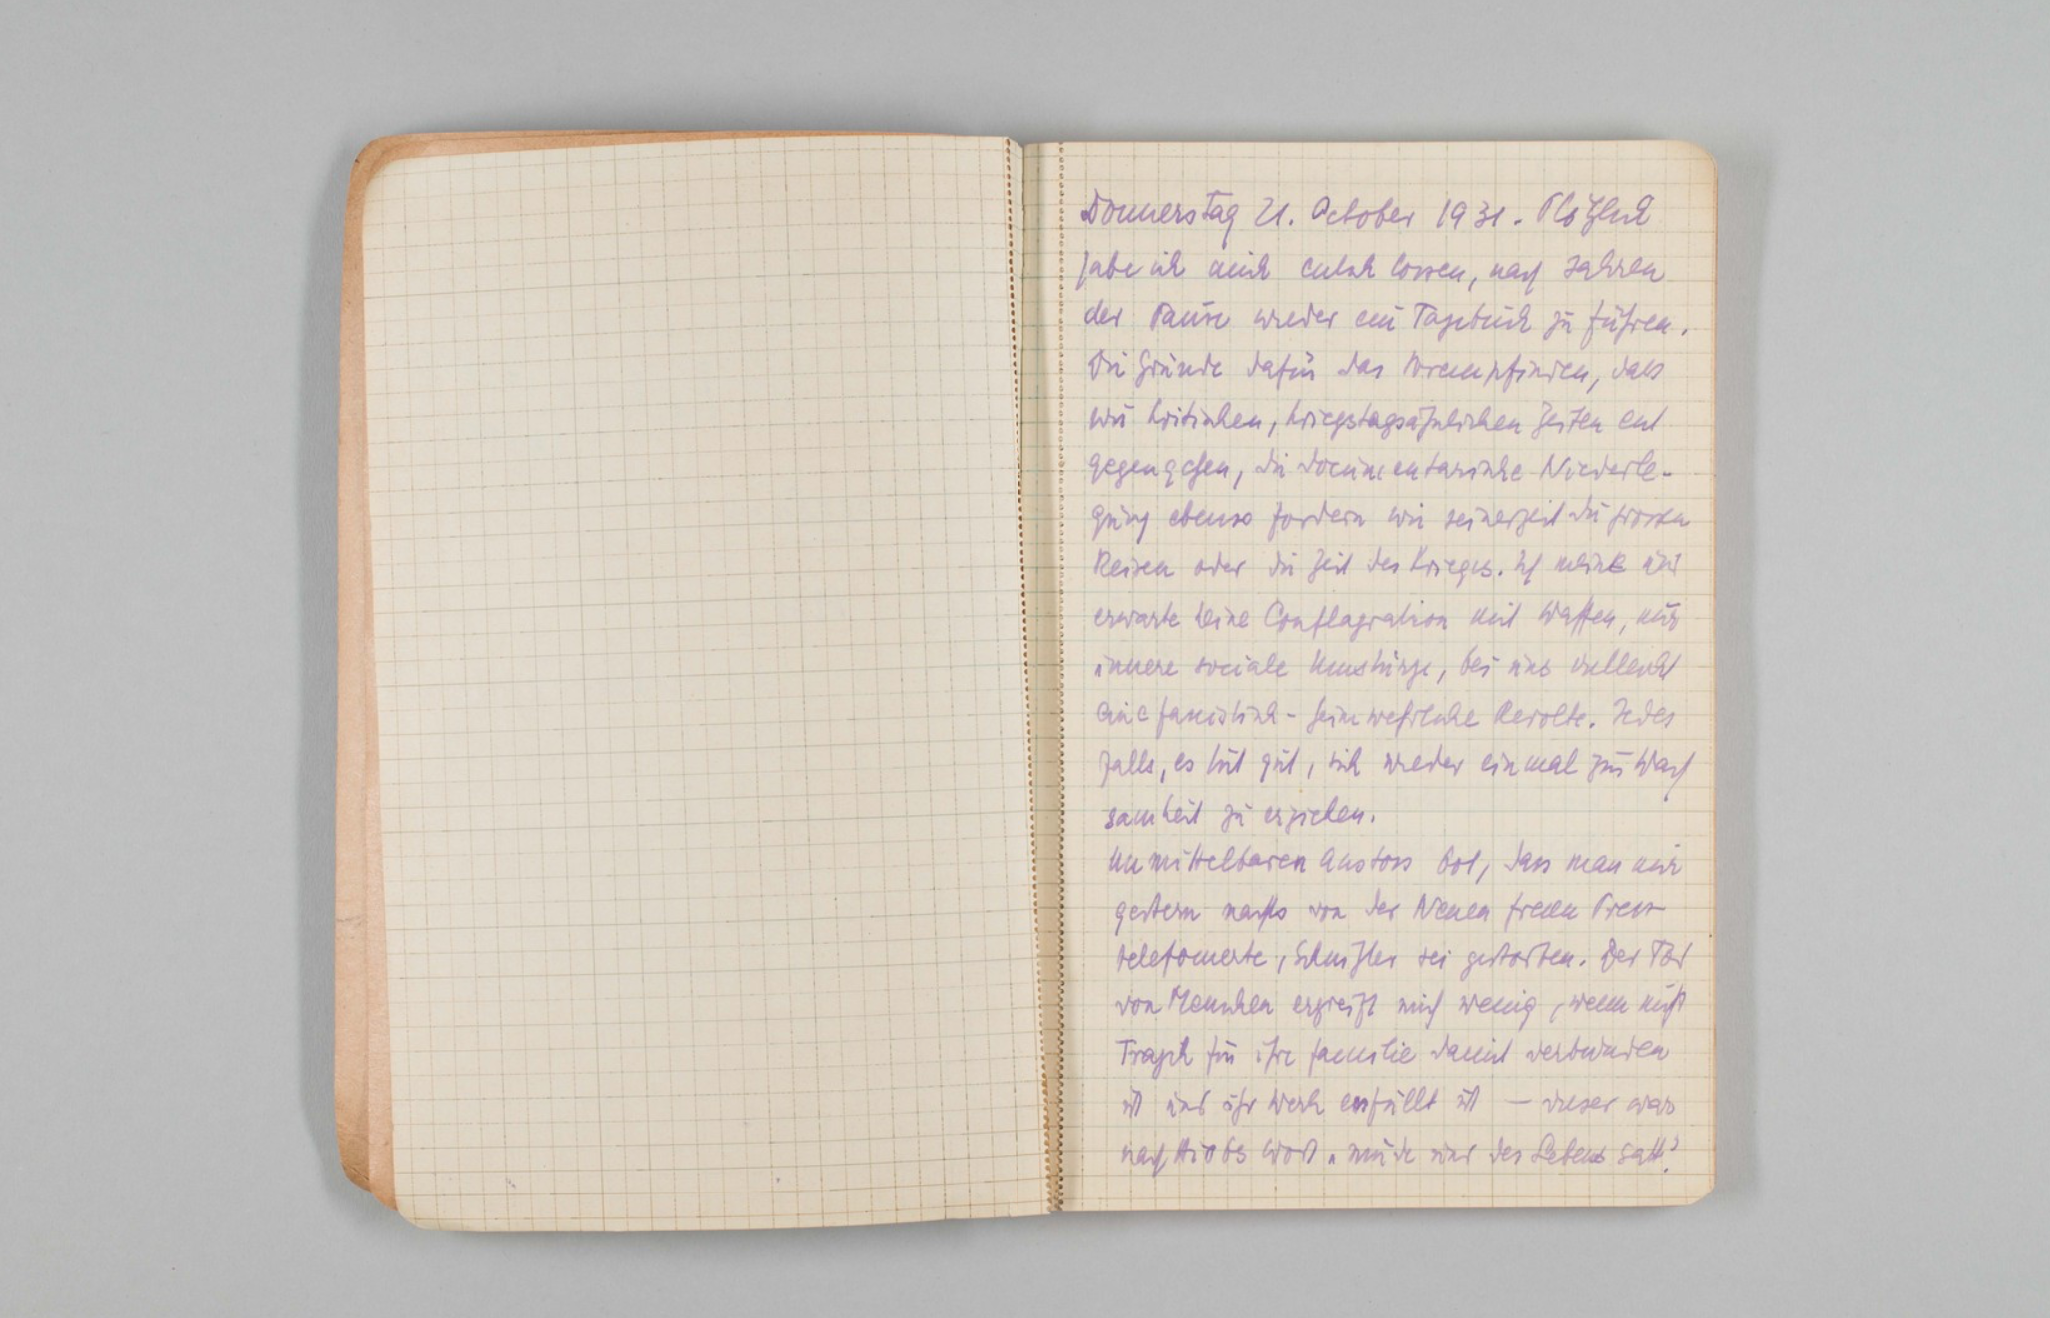 Donnerstag 21. October 1931. Plötzlich
habe ich mich entschlossen, nach Jahren
der Pause wieder ein Tagebuch zu führen.
Die Gründe dafür das Vorempfinden, dass
wir kritischen, kriegstagsähnlichen Zeiten ent
gegengehen, die documentarische Niederle-
gung ebenso fordern wie seinerzeit die grossen
Reisen oder die Zeit des Krieges. Ich meine und
erwarte keine Conflagration mit Waffen, nur
innere sociale Umstürze, bei uns vielleicht
eine fascistisch-heimwehrliche Revolte. Jedes
falls, es tut gut, sich wieder einmal zur Wach
samkeit zu erziehen.
Unmittelbaren Anstoss bot, dass man mir
gestern nachts von der Neuen freien Presse
telefonierte, Schnitzler sei gestorben. Der Tod
von Menschen ergreift mich wenig, wenn nicht
Tragik für ihre Familie damit verbunden
ist und ihr Werk erfüllt ist — dieser war
nach Hiobs Wort „müde und des Lebens satt“.